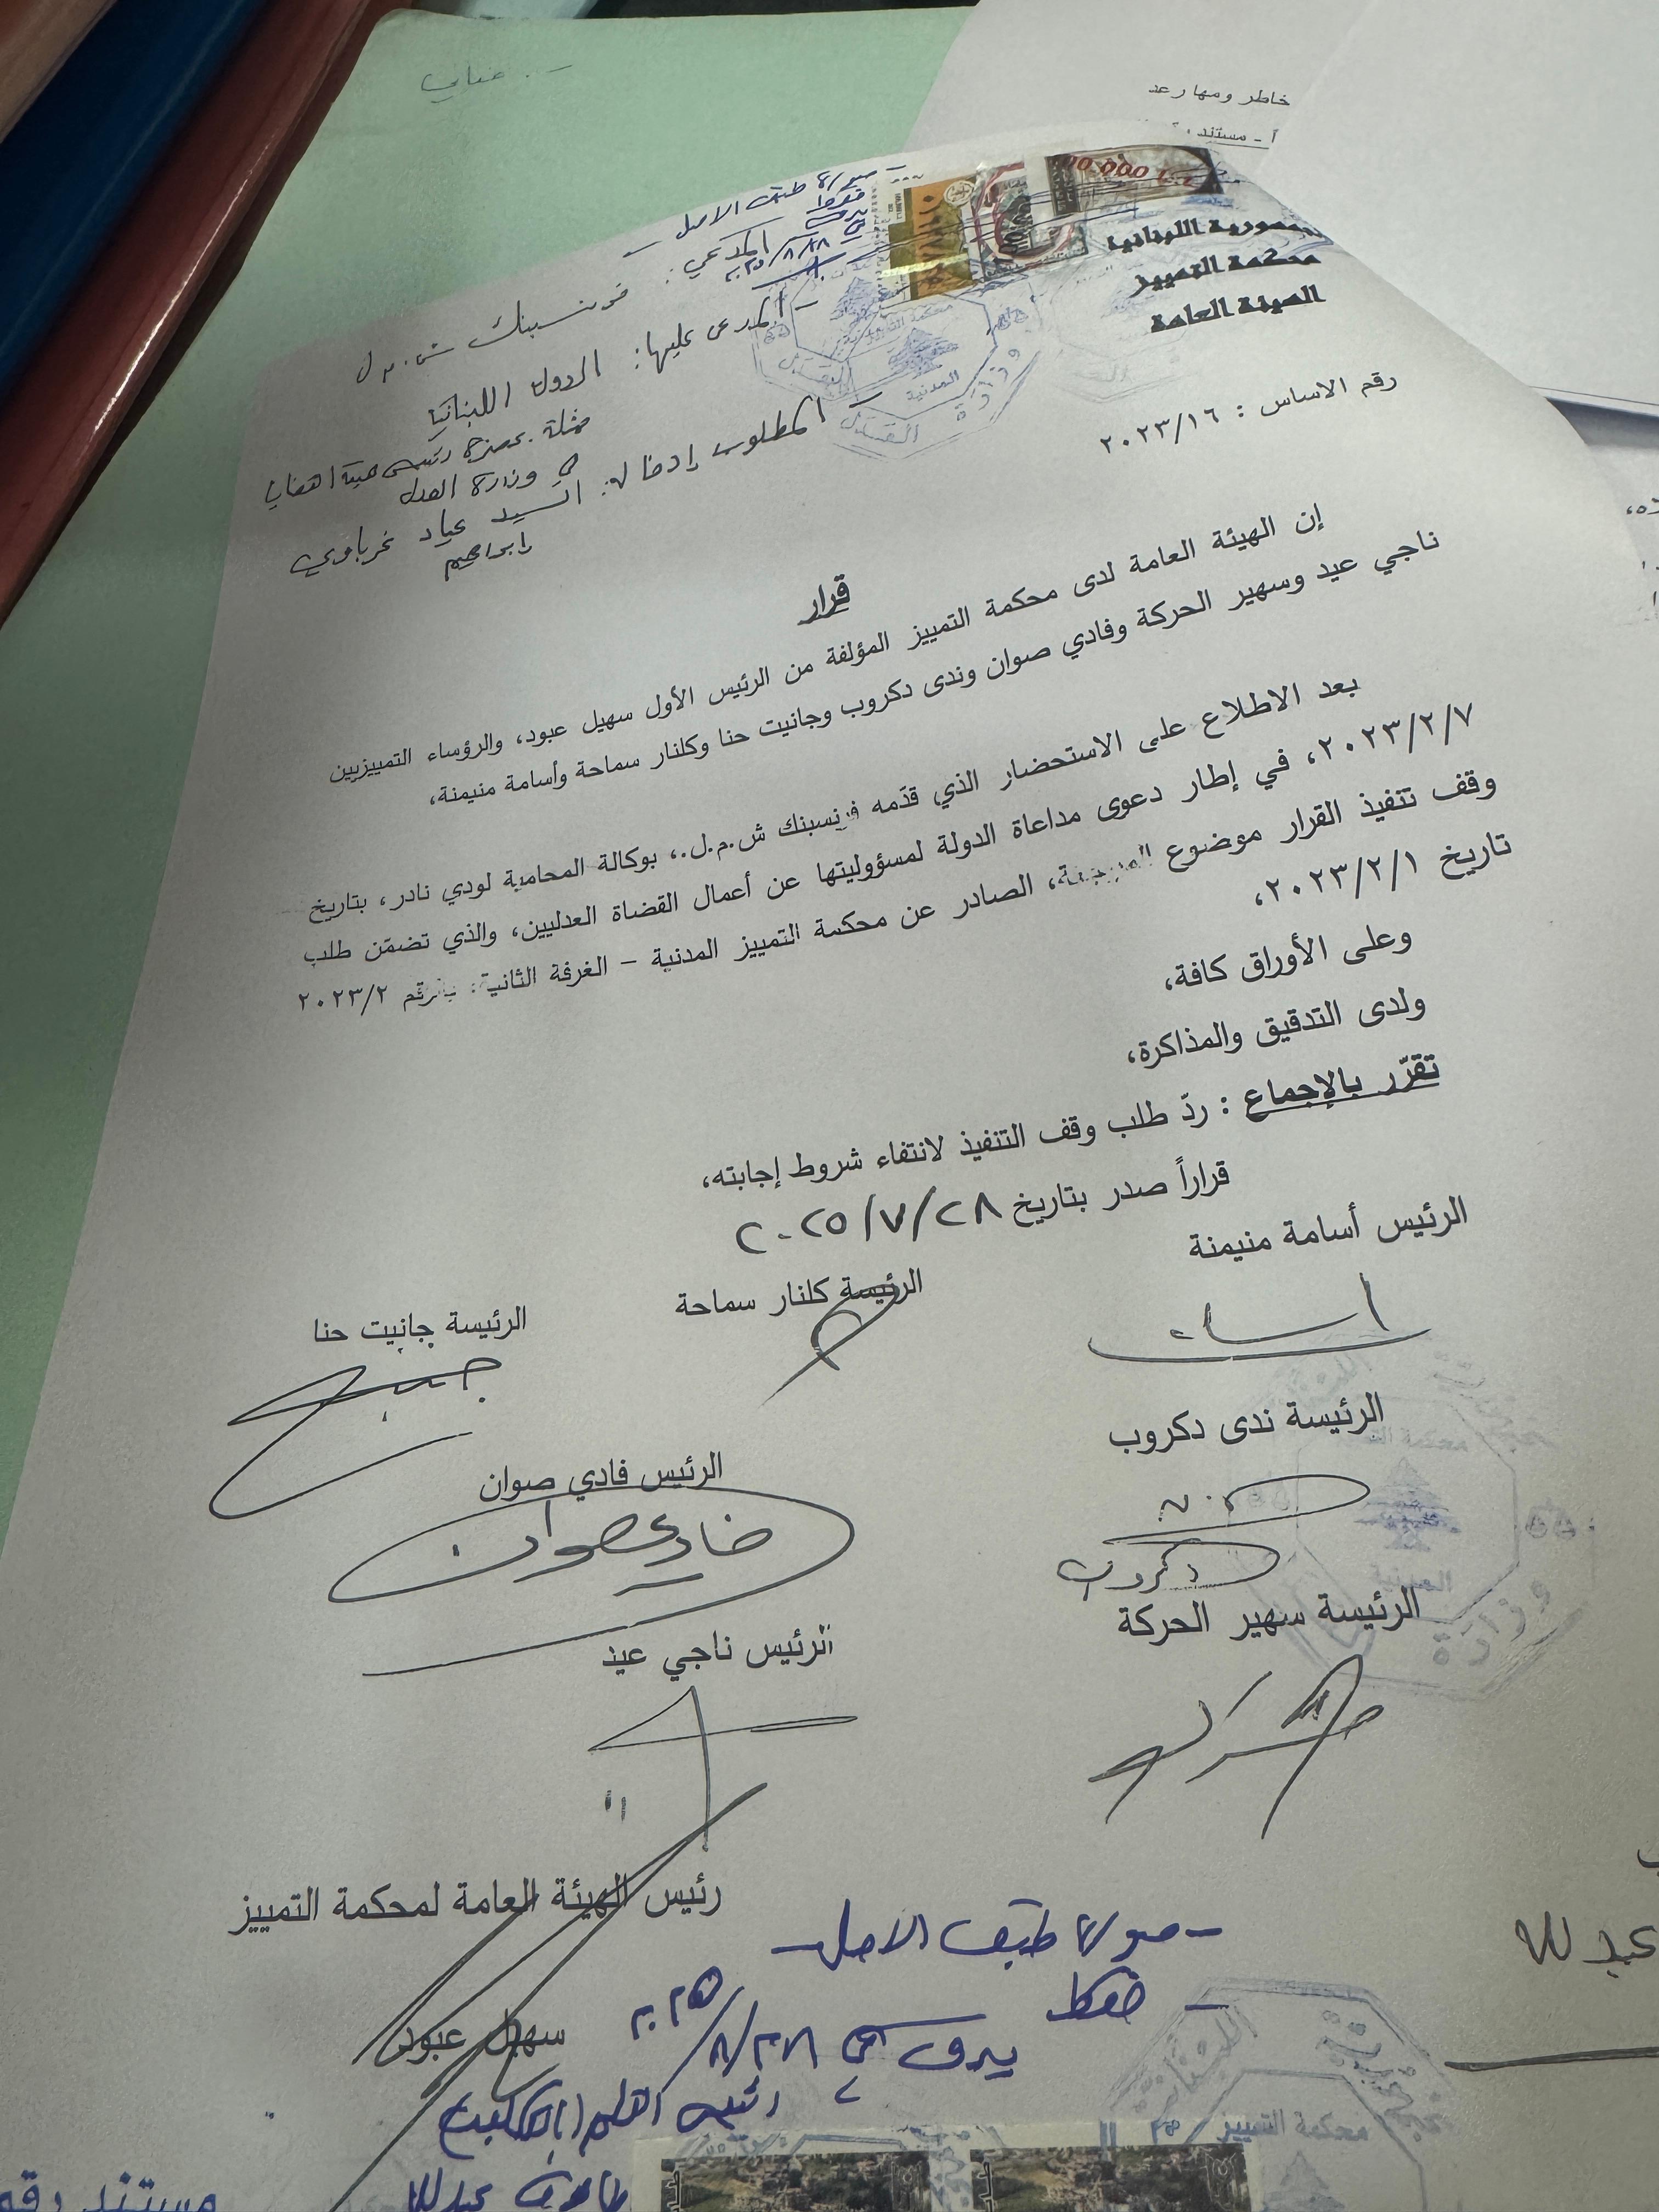 خاطر ومها رعد
أ - مستند
الجمهورية اللبنانية
محكمة التمييز
الهيئة العامة
رقم الاساس : ٢٠٢٣/١٦
- صورة طبق الاصل -
٢٠٢٥/٨/٢٨
المدعي: فرنسبنك ش.م.ل
- المدعى عليها: الدولة اللبنانية
ممثلة بحضرة رئيس هيئة القضايا
في وزارة العدل
- المطلوب إدخاله: السيد عياد غرباوي
ابراهيم
قرار
إن الهيئة العامة لدى محكمة التمييز المؤلفة من الرئيس الأول سهيل عبود، والرؤساء التمييزيين
ناجي عيد وسهير الحركة وفادي صوان وندى دكروب وجانيت حنا وكلنار سماحة وأسامة منيمنة،
بعد الاطلاع على الاستحضار الذي قدّمه فرنسبنك ش.م.ل.، بوكالة المحامية لودي نادر، بتاريخ
٢٠٢٣/٢/٧، في إطار دعوى مداعاة الدولة لمسؤوليتها عن أعمال القضاة العدليين، والذي تضمّن طلب
وقف تنفيذ القرار موضوع المراجعة، الصادر عن محكمة التمييز المدنية – الغرفة الثانية، بالرقم ٢٠٢٣/٢
تاريخ ٢٠٢٣/٢/١،
وعلى الأوراق كافة،
ولدى التدقيق والمذاكرة،
تقرّر بالإجماع : ردّ طلب وقف التنفيذ لانتفاء شروط إجابته،
قراراً صدر بتاريخ ٢٠٢٥/٧/٢٨
الرئيس أسامة منيمنة
الرئيسة كلنار سماحة
الرئيسة جانيت حنا
الرئيسة ندى دكروب
الرئيس فادي صوان
فادي صوان
دكروب
الرئيسة سهير الحركة
الرئيس ناجي عيد
رئيس الهيئة العامة لمحكمة التمييز
سهيل عبود
- صورة طبق الاصل -
- فقط
بيروت في ٢٠٢٥/٨/٢٨
رئيس القلم (بالتكليف)
عبدالله
محكمة التمييز
وزارة
مستند رقم